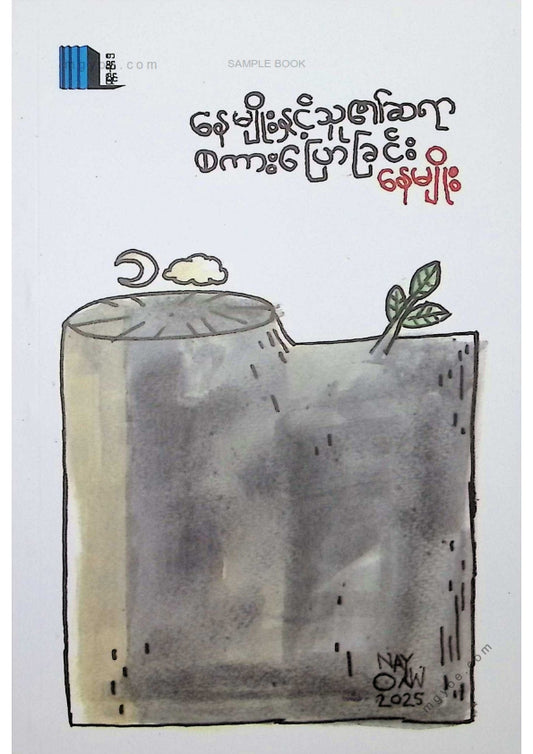 mgyoe.com
SAMPLE BOOK
နေမျိုးနှင့်သူ၏ဆရာ
စကားပြောခြင်း
နေမျိုး
NAY
OAW
2025
mgyoe.com